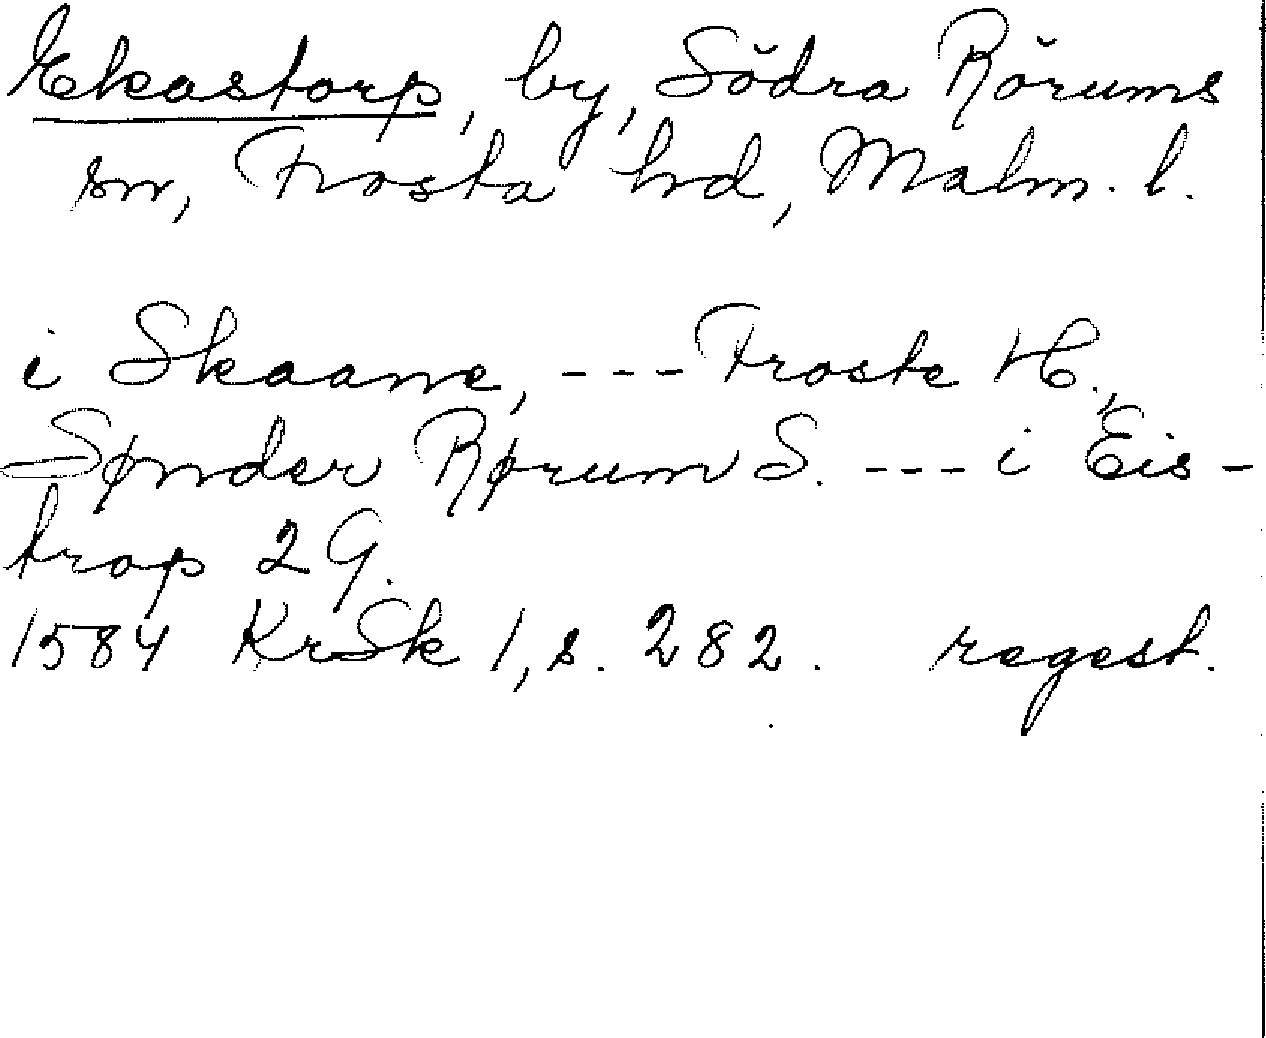 Ekastorp, by, Södra Rörums
sn, Frosta hd, Malm. l.
i Skaane, --- Froste H.,
Sønder Rørum S. --- i Eis-
trop 2 G.
1584 KrSk 1, s. 282. regest.